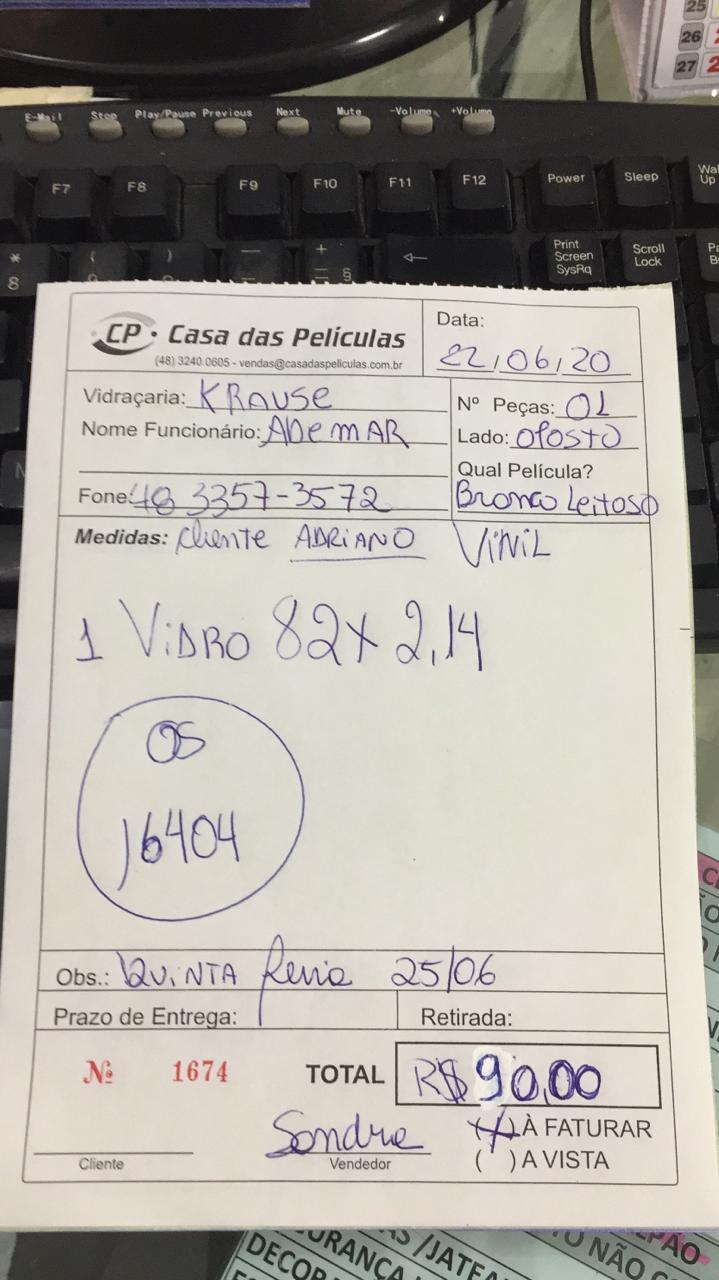 25
26
27
E-Mail Stop Play/Pause Previous Next Mute -Volume +Volume
F7 F8 F9 F10 F11 F12 Power Sleep
Print Screen SysRq Scroll Lock
* 8
CP · Casa das Películas
(48) 3240.0605 - vendas@casadaspeliculas.com.br
Data:
22/06/20
Vidraçaria: KRAUSE
Nº Peças: 01
Nome Funcionário: ADEMAR
Lado: oposto
Qual Película?
Fone: 48 3357-3572
Bronco Leitoso
Medidas: cliente ADRIANO VINIL
1 VIDRO 82 x 2,14
OS
16404
Obs.: QUINTA feria 25/06
Prazo de Entrega:
Retirada:
Nº 1674
TOTAL R$ 90,00
Sondra
(X) À FATURAR
Cliente
Vendedor
( ) A VISTA